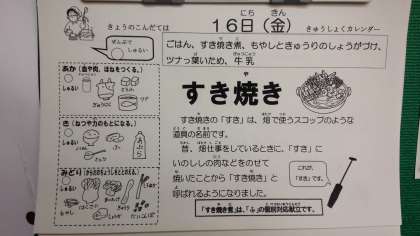 きょうのこんだては
16日(金)
にち きん
きゅうしょくカレンダー
ぜんぶで
しゅるい
ごはん、すき焼き煮、もやしときゅうりのしょうがづけ、
ツナッ葉いため、牛乳
あか(血や肉、ほねをつくる。)
しゅるい
ぎゅうにく
ツナ
すき焼き
すき焼きの「すき」は、畑で使うスコップのような
道具の名前です。
昔、畑仕事をしているときに、「すき」に
いのししの肉などをのせて
焼いたことから「すき焼き」と
呼ばれるようになりました。
き(ねつや力のもとになる。)
しゅるい
あぶら
みどり(からだのちょうしをととのえる。)
しゅるい
もやし
これが、
「すき」です。
「すき焼き煮」は、「ふ」の個別対応献立です。